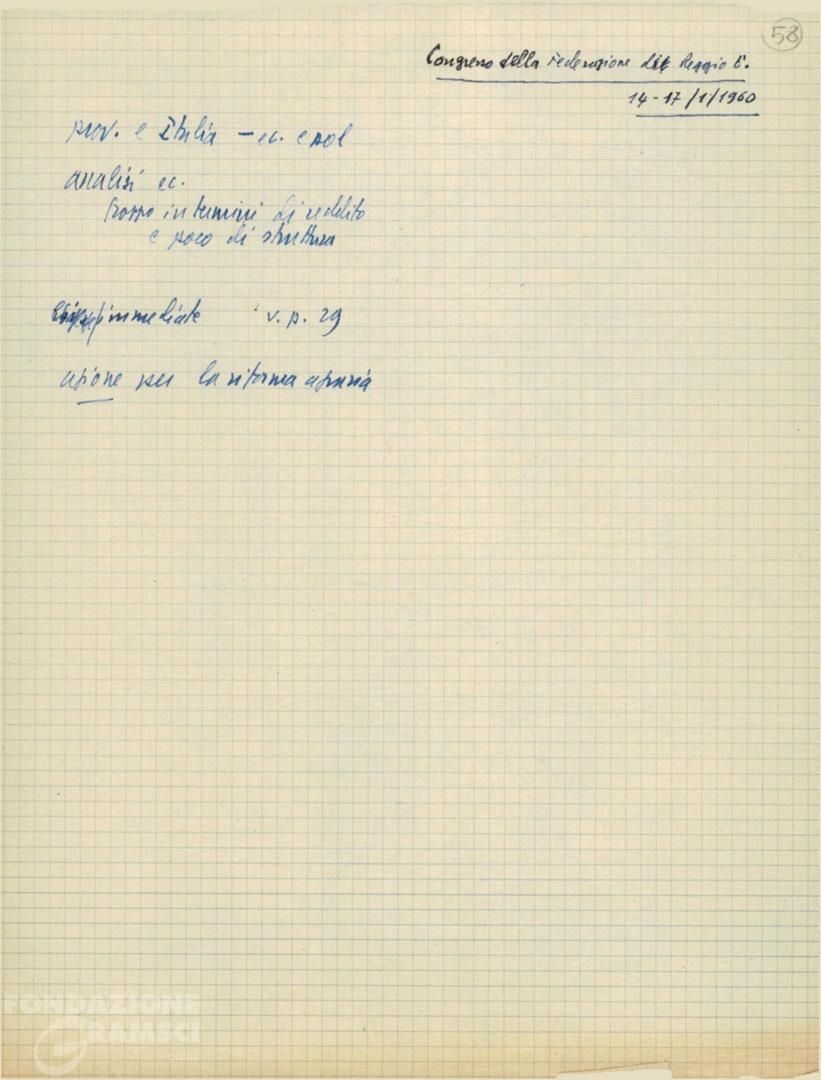 58
Congresso della Federazione di Reggio E.
14-17/1/1960
prov. e Italia - ec. e pol
analisi ec.
troppo in termini di reddito
e poco di struttura
immediate v. p. 29
azione per la riforma agraria
FONDAZIONE
GRAMSCI